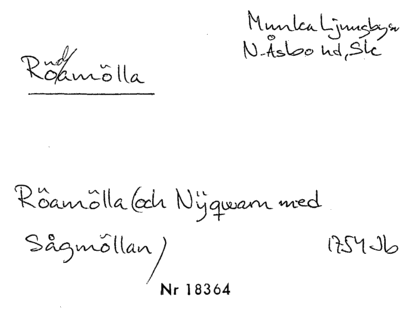 Munka Ljungbysn
N. Åsbo hd, Slc
Röndamölla
Röamölla (och Nÿqwarn med
Sågmöllan)
1754 Jb
Nr 18364